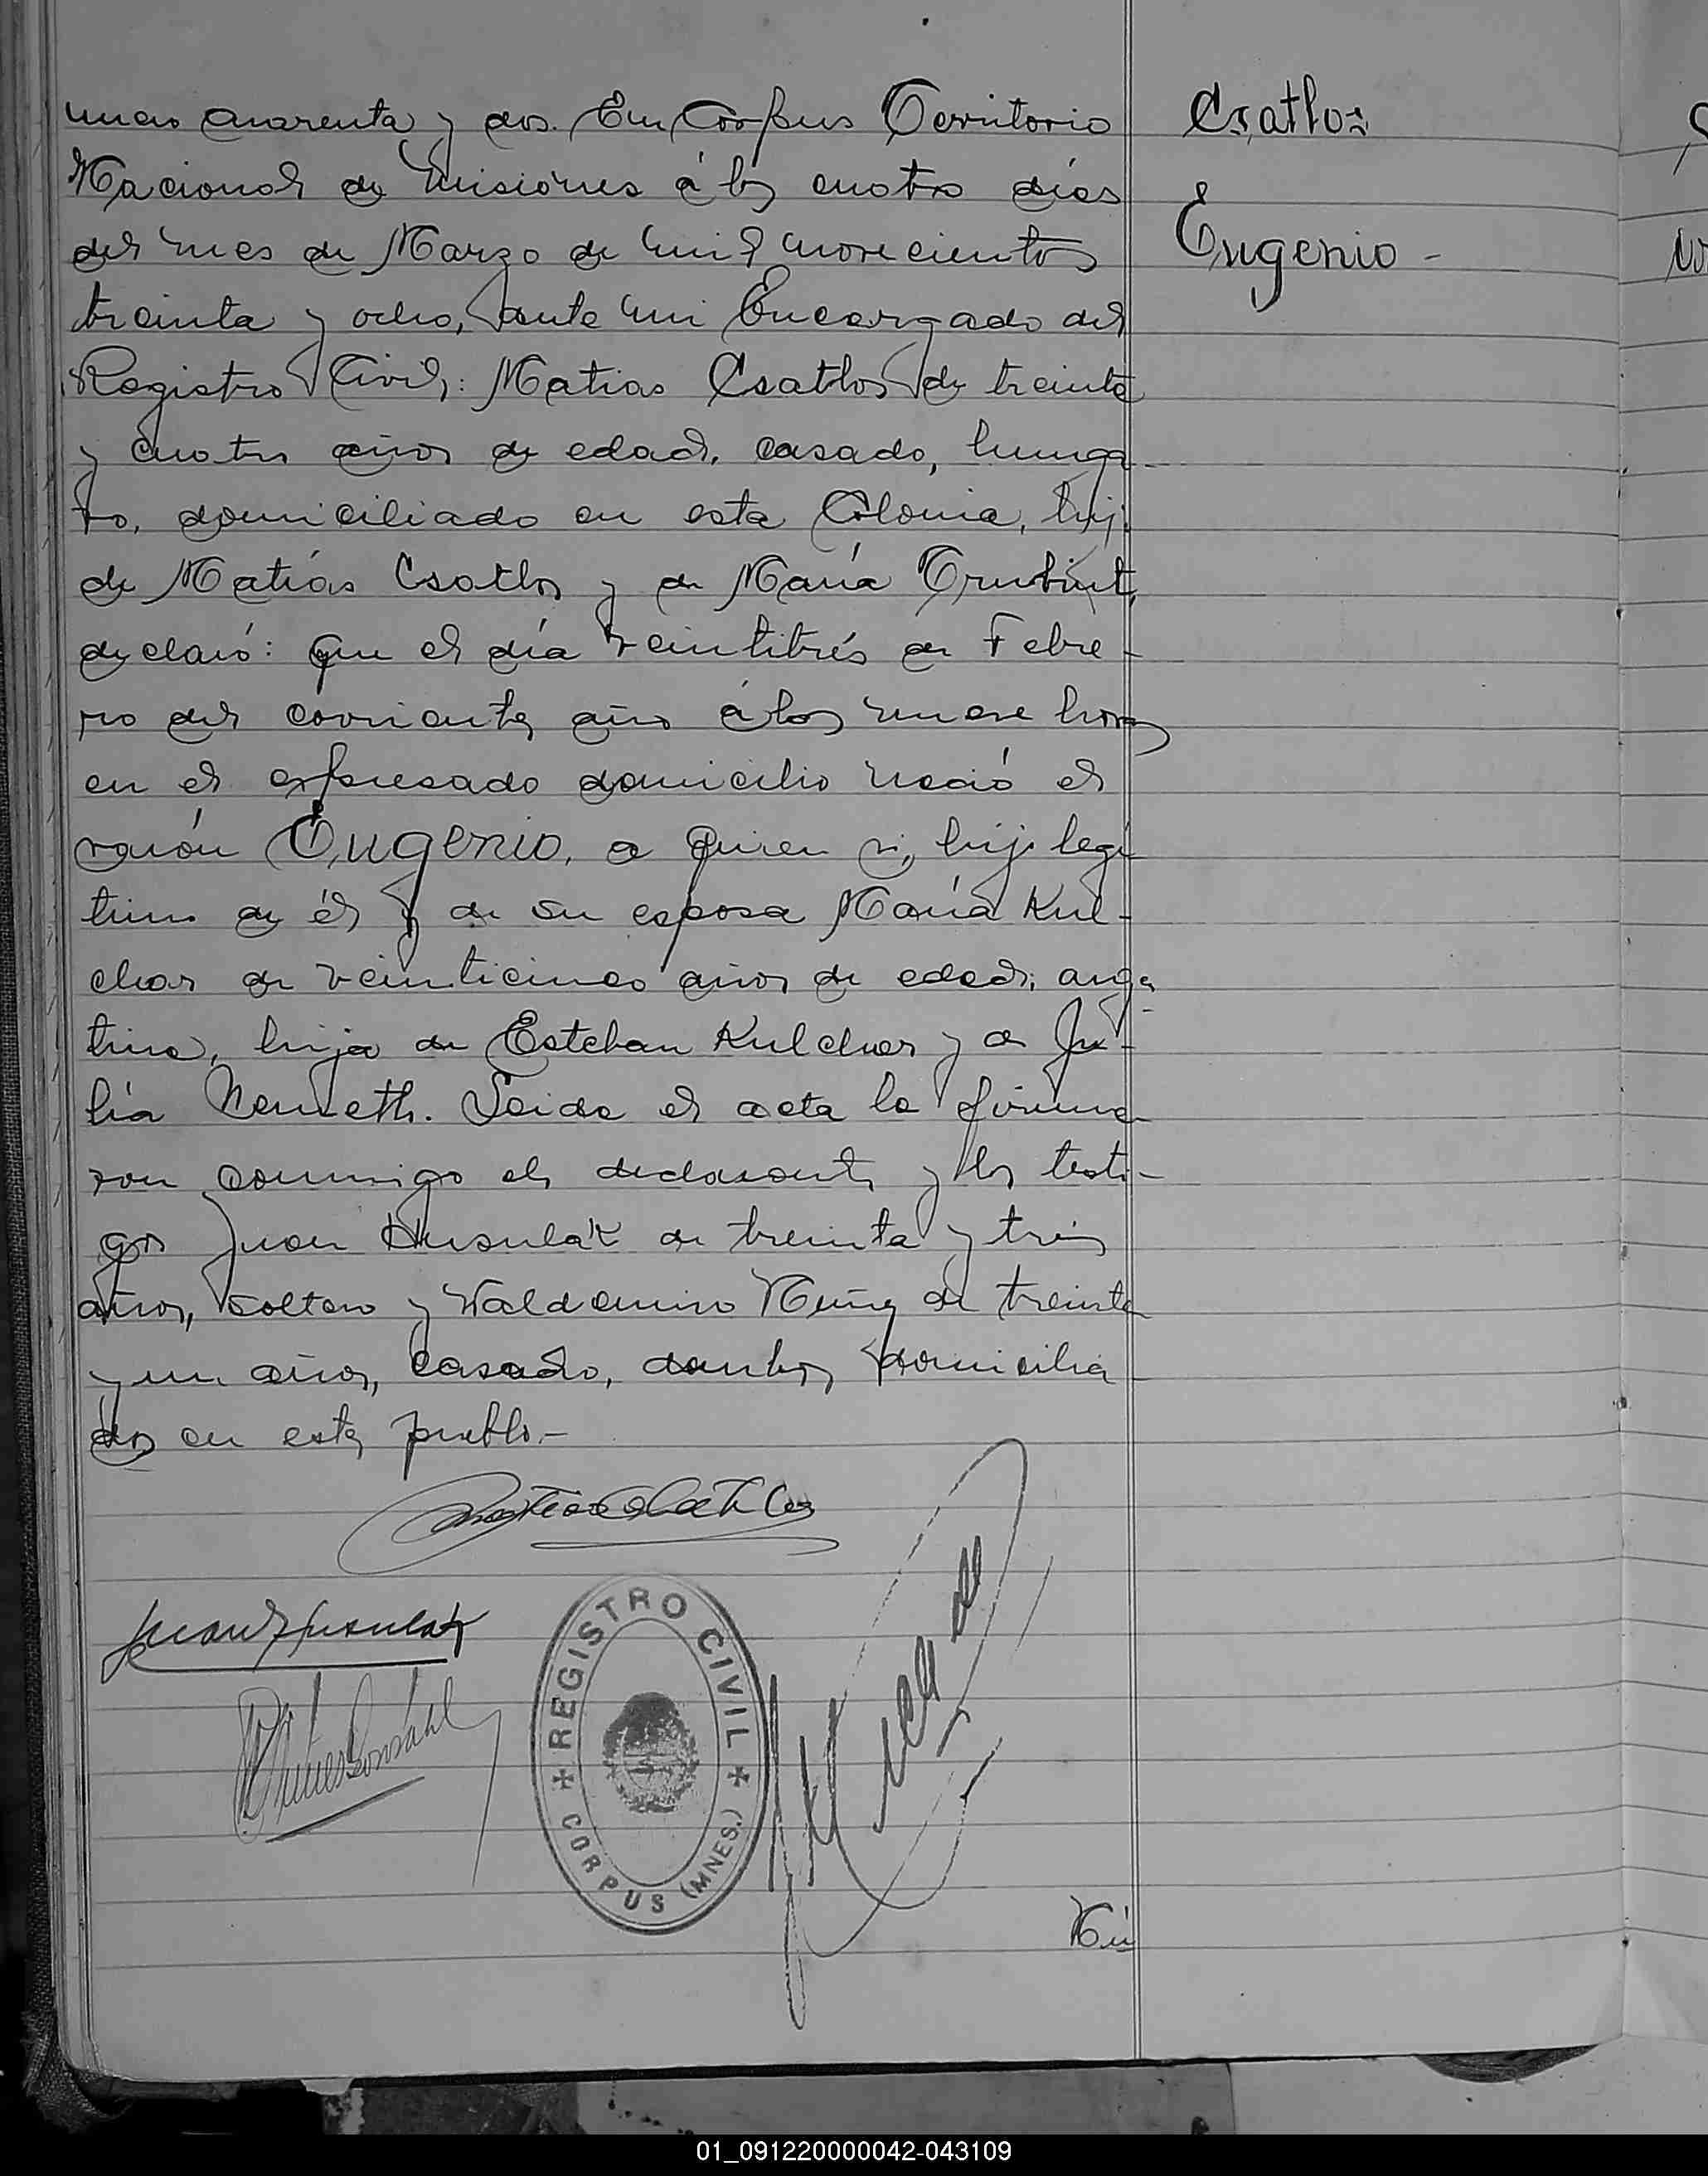 mero cuarenta y dos. En Corpus Territorio
Nacional de Misiónes á los cuatro días
del mes de Marzo de mil novecientos
treinta y ocho, ante mi Encargado del
Registro Civil: Matias Csatlos de treinta
y cuatro años de edad, casado, hunga
ro, domiciliado en esta Colonia, hijo
de Matías Csatlos y de María
declaró: que el día veintitrés de Febre-
ro del corriente año á las nueve horas
en el expresado domicilio nació el
varón Eugenio, a quien vi, hijo legí
timo de él y de su esposa María Kul-
char de veinticinco años de edad, argen
tina, hija de Esteban Kulchar y de Ju-
lia Nemeth. Leida el acta la firma
ron conmigo el declarante y los testi-
gos Juan Husulak de treinta y tres
años, soltero y Waldomiro Núñez de treinta
y un años, casado, ambos domicilia-
dos en este pueblo.-
Csatlos
Eugenio -
Matias Csatlos
Juan Husulak
REGISTRO CIVIL
CORPUS (MNES.)
Nú
01_091220000042-043109